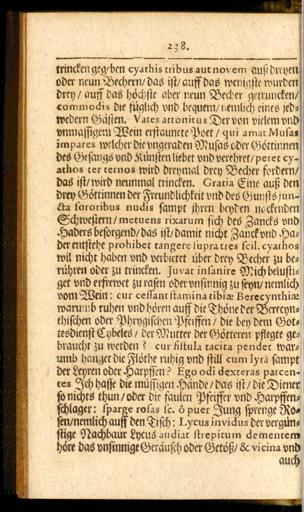 238.
trincken geg/ben cyathis tribus aut novem auß dreyen
oder neun Bechern/ das ist/ auff das wenigste wurden
drey/ auff das höchste aber neun Becher getruncken/
commodis die füglich vnd bequem/ nemlich eines jed-
wedern Gästen. Vates attonitus Der von vielem vnd
vnmässigem Wein erstaunete Poet/ qui amat Musas
impares welcher die vngeraden Musas oder Göttinnen
des Gesangs vnd Künsten liebet vnd verehret/ petet cy-
athos ter ternos wird dreymal drey Becher fordern/
das ist/ wird neunmal trincken. Gratia Eine auß den
drey Göttinnen der Freundlichkeit vnd des Gunsts jun-
cta sororibus nudis sampt jhren beyden nackenden
Schwestern/ metuens rixarum sich des Zancks vnd
Haders besorgend/ das ist/ damit nicht Zanck vnd Ha-
der entstehe prohibet tangere supra tres scil. cyathos
wil nicht haben vnd verbietet über drey Becher zu be-
rühren oder zu trincken. Juvat insanire Mich belusti-
get vnd erfrewet zu rasen oder vnsinnig zu seyn/ nemlich
vom Wein: cur cessant flamina tibiæ Berecynthiæ
warumb ruhen vnd hören auff die Thöne der Berecyn-
thischen oder Phrygischen Pfeiffen/ die bey dem Got-
tesdienst Cybeles/ der Mutter der Götteren pflegte ge-
braucht zu werden? cur fistula tacita pendet war-
umb hanget die Flöthe ruhig vnd still cum lyrâ sampt
der Leyren oder Harpffen? Ego odi dexteras parcen-
tes Jch hasse die müssigen Hände/ das ist/ die Diener
so nichts thun/ oder die faulen Pfeiffer vnd Harpffen-
schlager: sparge rosas sc. ô puer Jung sprenge Ro-
sen/ nemlich auff den Tisch: Lycus invidus der vergün-
stige Nachbaur Lycus audiat strepitum dementem
höre das vnsinnige Geräusch oder Getöß/ & vicina vnd
auch